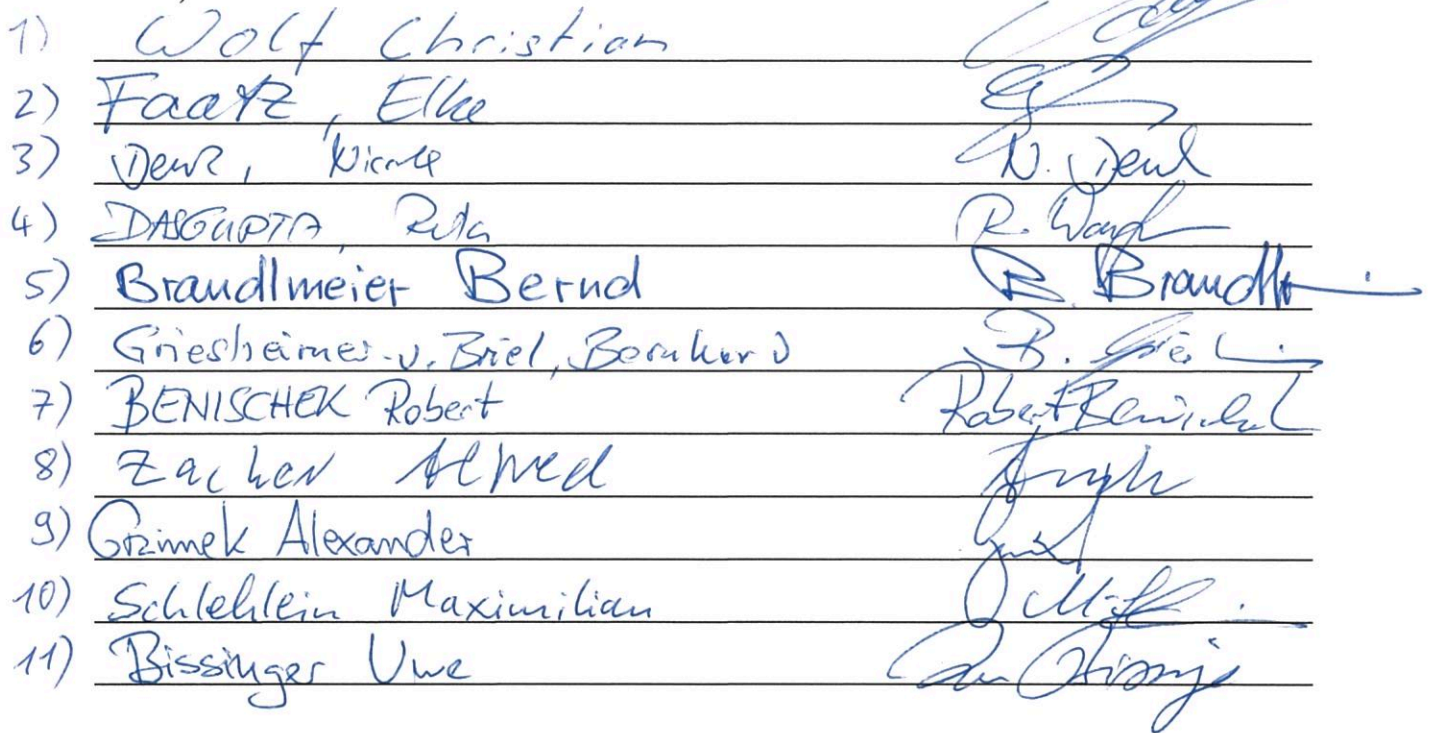 1) Wolf Christian
2) Faatz, Elke
3) Denk, Nicole N. Denk
4) DASGUPTA, Rita R.
5) Brandlmeier Bernd B. Brandlm
6) Griesheimer-v. Briel, Bernhard B.
7) BENISCHEK Robert Robert Benischek
8) Zacher Alfred
9) Grzimek Alexander
10) Schlehlein Maximilian
11) Bissinger Uwe Uwe Bissinger